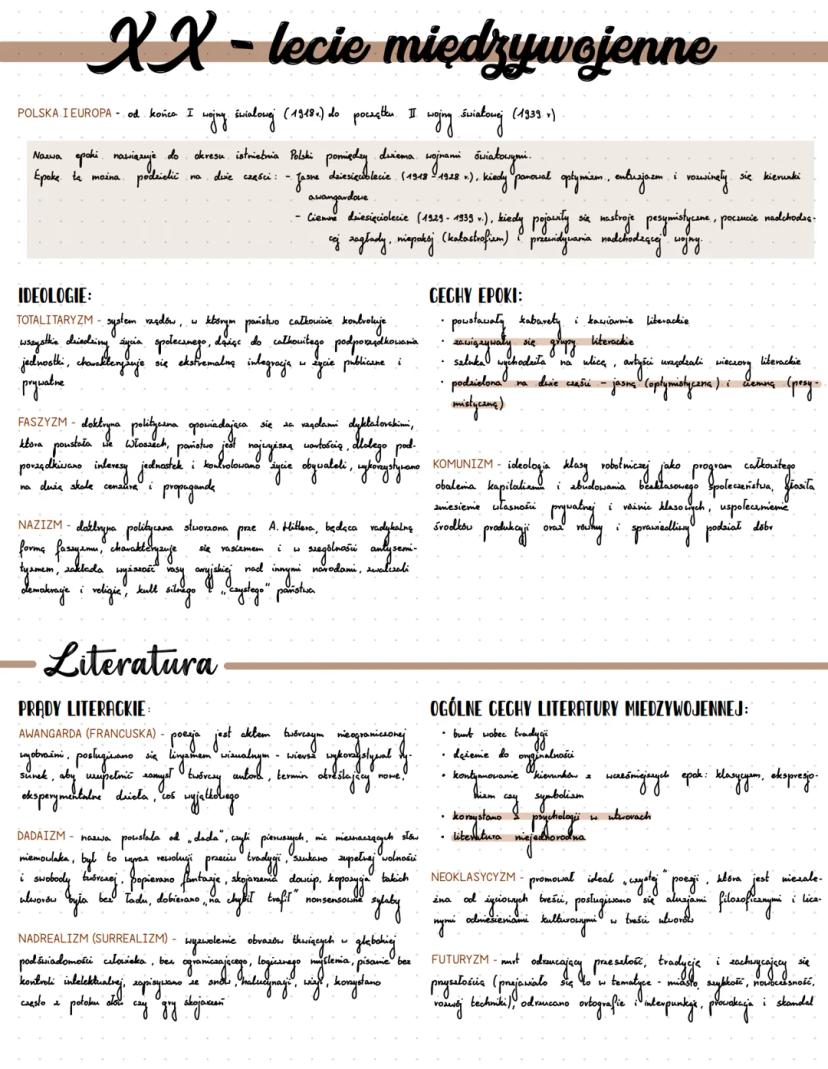 XX - lecie międzywojenne
POLSKA I EUROPA - od końca I wojny światowej (1918r.) do początku II wojny światowej (1939 r)
Nazwa epoki nawiązuje do okresu istnietnia Polski pomiędzy dwiema wojnami światowymi.
Epokę tę można podzielić na dwie części: - Jasne dziesięciolecie (1918-1928 r.), kiedy panował optymizm, entuzjazm i rozwinęły się kierunki
awangardowe
- Ciemne dziesięciolecie (1929-1939 r.), kiedy pojawiły się nastroje pesymistyczne, poczucie nadchodzą-
cej zagłady, niepokój (katastrofizm) i przewidywania nadchodzącej wojny.
IDEOLOGIE:
TOTALITARYZM - system rządów, w którym państwo całkowicie kontroluje
wszystkie dziedziny życia społecznego, dążąc do całkowitego podporządkowania
jednostki, charakteryzuje się ekstremalną integracją w życie publiczne i
prywatne
FASZYZM - doktryna polityczna opowiadająca się za rządami dyktatorskimi,
która powstała we Włoszech, państwo jest najwyższą wartością, dlatego pod-
porządkowano interesy jednostek i kontrolowano życie obywateli, wykorzystywano
na dużą skalę cenzurę i propagandę
NAZIZM - doktryna polityczna stworzona prze A. Hitlera, będąca radykalną
formą faszyzmu, charakteryzuje się rasizmem i w szególności antysemi-
tyzmem, zakłada wyższość rasy aryjskiej nad innymi narodami, zwalczali
demokrację i religię, kult silnego i „czystego" państwa
CECHY EPOKI:
· powstawały kabarety i kawiarnie literackie
· zawiązywały się grupy literackie
· sztuka wychodziła na ulicę, artyści urządzali wieczory literackie
· podzielona na dwie części - jasną (optymistyczną) i ciemną (pesy-
mistyczną)
KOMUNIZM - ideologia klasy robotniczej jako program całkowitego
obalenia kapitalizmu i zbudowania bezklasowego społeczeństwa, głosiła
zniesienie własności prywatnej i różnic klasowych, uspołecznienie
środków produkcji oraz równy i sprawiedliwy podział dóbr
Literatura
PRĄDY LITERACKIE:
AWANGARDA (FRANCUSKA) - poezja jest aktem twórczym nieograniczonej
wyobraźni, posługiwano się liryzmem wizualnym - wiersz wykorzystywał ry-
sunek, aby uzupełnić zamysł twórczy autora, termin określający nowe,
eksperymentalne dzieła, coś wyjątkowego
DADAIZM - nazwa powstała od „dada", czyli pierwszych, nic nieznaczących słów
niemowlaka, był to wyraz rewolucji przeciw tradycji, szukano zupełnej wolności
i swobody twórczej, popierano fantazję, skojarzenia dowcip, kopozycja takich
utworów była bez ładu, dobierano „na chybił trafił" nonsensowne sylaby
NADREALIZM (SURREALIZM) - wyzwolenie obrazów tkwiących w głębokiej
podświadomości człowieka, bez ograniczającego, logicznego myślenia, pisanie bez
kontroli intelektualnej, zapisywano ze snów, halucynacji, wizji, korzystano
często z potoku słów czy gry skojarzeń
OGÓLNE CECHY LITERATURY MIEDZYWOJENNEJ:
· bunt wobec tradycji
· dążenie do oryginalności
· kontynuowanie kierunków z wcześniejszych epok: klasycyzm, ekspresjo-
nizm czy symbolizm
· korzystano z psychologii w utworach
· literatura niejednorodna
NEOKLASYCYZM - promował ideał „czystej" poezji, która jest niezale-
żna od życiowych treści, posługiwano się aluzjami filozoficznymi i licz-
nymi odniesieniami kulturowymi w treści utworów
FUTURYZM - nurt odrzucający przeszłość, tradycję i zachwycający się
przyszłością (przejawiało się to w tematyce - miasto, szybkość, nowoczesność,
rozwój techniki), odrzucano ortografię i interpunkcję, prowokacja i skandal